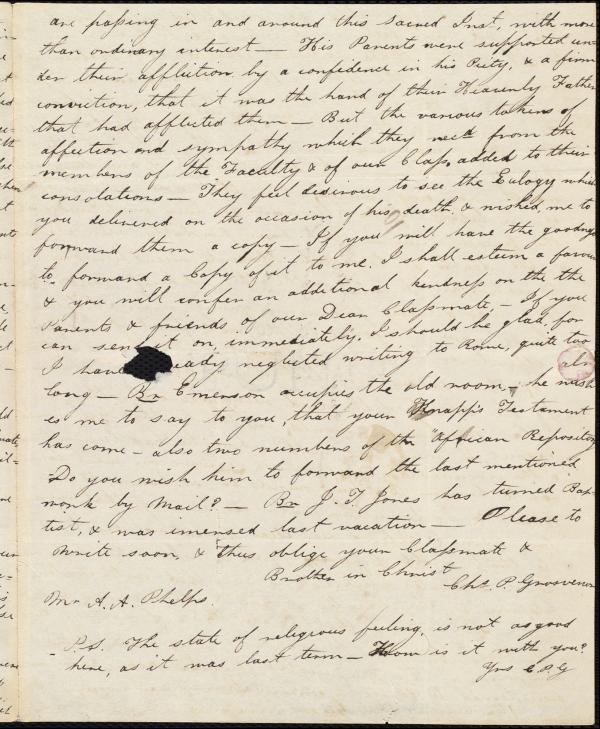 are passing in and around this sacred Inst, with more
than ordinary interest — His Parents were supported un-
der their affliction by a confidence in his Piety, & a firm
conviction, that it was the hand of their Heavenly Father
that had afflicted them — But the various tokens of
affection and sympathy which they recd from the
members of the Faculty & of our Class, added to their
consolations — They feel desirous to see the Eulogy which
you delivered on the occasion of his death, & wished me to
forward them a copy — If you will have the goodness
to forward a Copy of it to me, I shall esteem a favour
& you will confer an additional kindness on the the
Parents & friends of our Dear Classmate, — If you
can send it on, immediately, I should be glad, for
I have eady neglected writing to Rome, quite too
long — Br Emerson occupies the old room, — he wish
es me to say to you, that your Knapp's Testament
has come — also two numbers of the "African Repository
Do you wish him to forward the last mentioned
work by Mail? — Br J. T. Jones has turned Bap-
tist, & was imersed last vacation — Please to
write soon, & thus oblige your Classmate &
Brother in Christ
Chs. P. Grosvenor
Mr A. A. Phelps.
P.S. The state of religious feeling, is not as good
here, as it was last term — How is it with you?
Yrs C. P. G